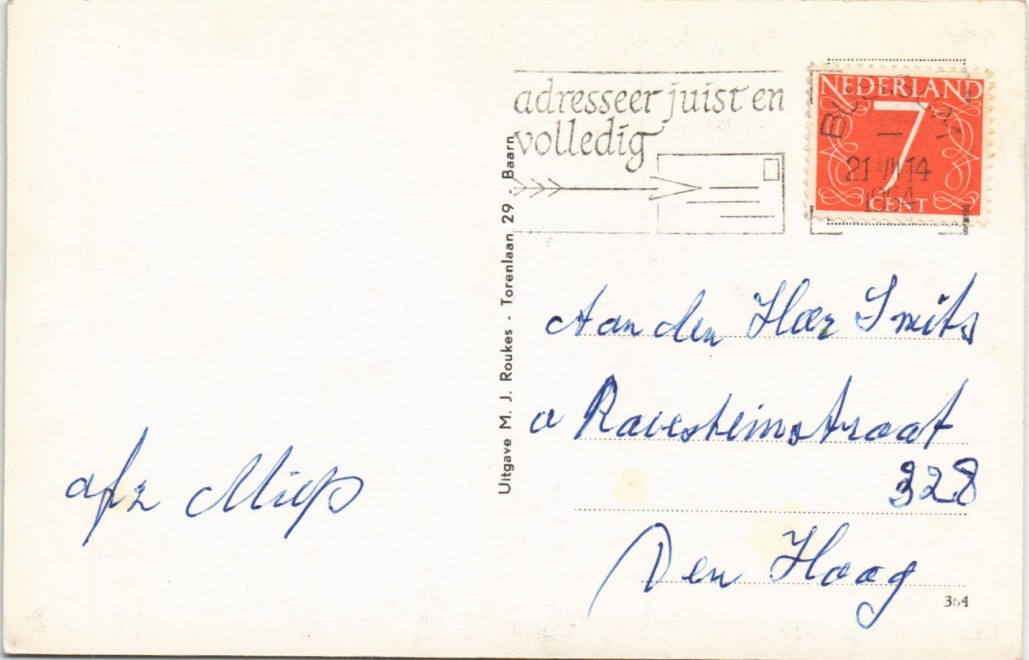 adresseer juist en
volledig
NEDERLAND
7
CENT
21 VII 14
1954
Uitgave M. J. Roukes - Torenlaan 29 - Baarn
Aan den Heer Smits
v Ravesteinstraat
328
Den Haag
afz Miep
364